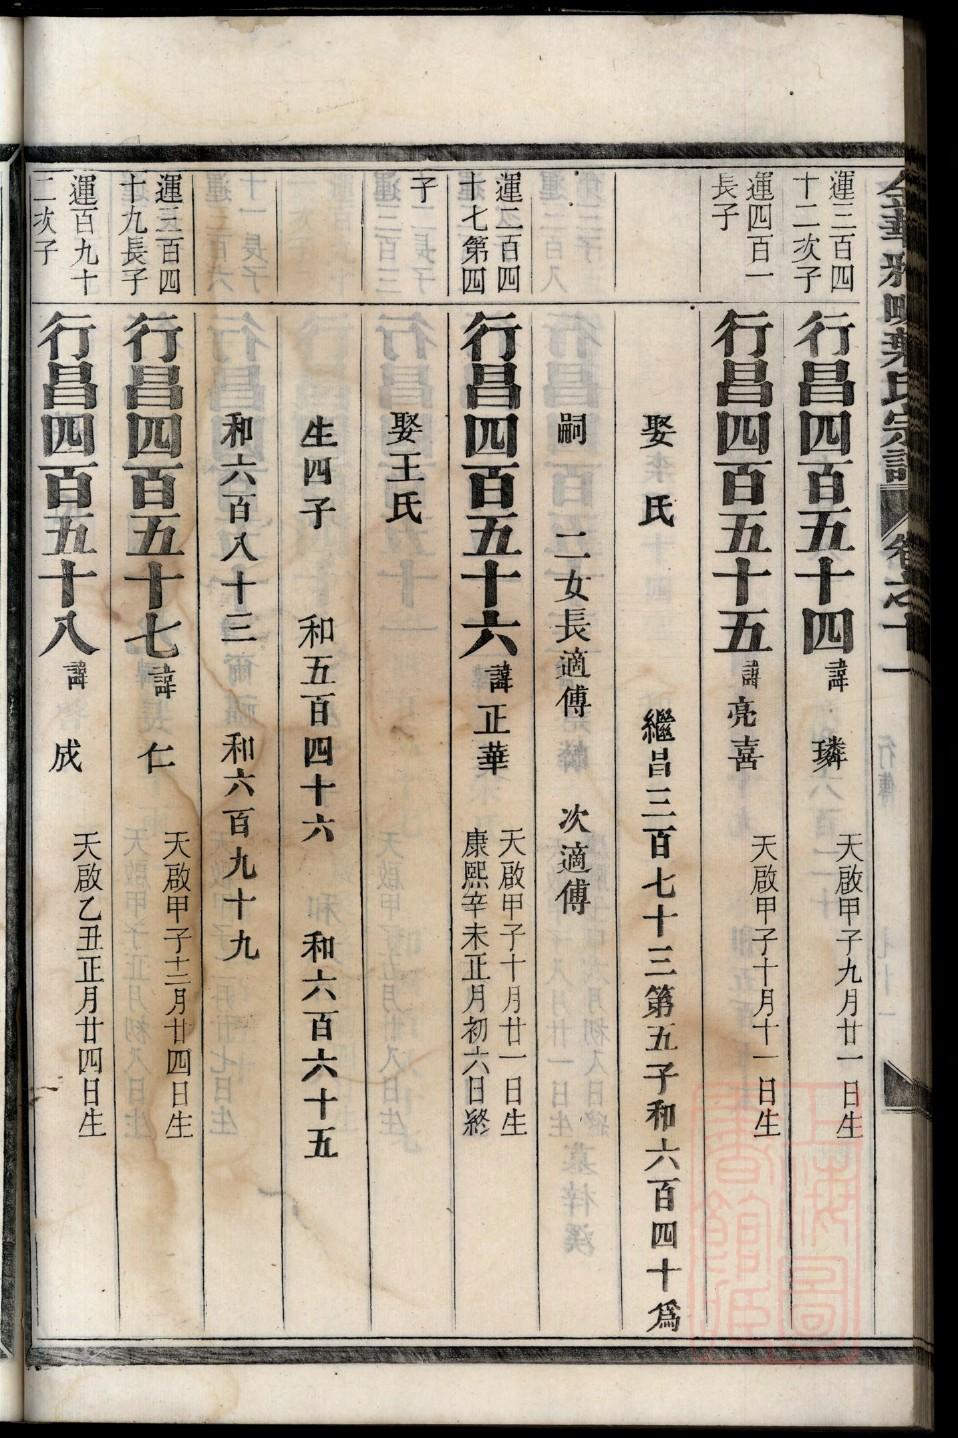 葉氏宗譜 卷之十一
行傳 七十一
運三百四十二次子
行昌四百五十四 諱 璘 天啟甲子九月廿一日生
運四百一長子
行昌四百五十五 諱亮喜 天啟甲子十月十一日生
娶李氏 繼昌三百七十三第五子和六百四十為
嗣 二女長適傅 次適傅
運二百四十七第四子
行昌四百五十六 諱正華 天啟甲子十月廿一日生 康熙辛未正月初六日終
娶王氏
生四子 和五百四十六 和六百六十五
和六百八十三 和六百九十九
運三百四十九長子
行昌四百五十七 諱 仁 天啟甲子十二月廿四日生
運百九十二次子
行昌四百五十八 諱 成 天啟乙丑正月廿四日生
上海圖書館藏